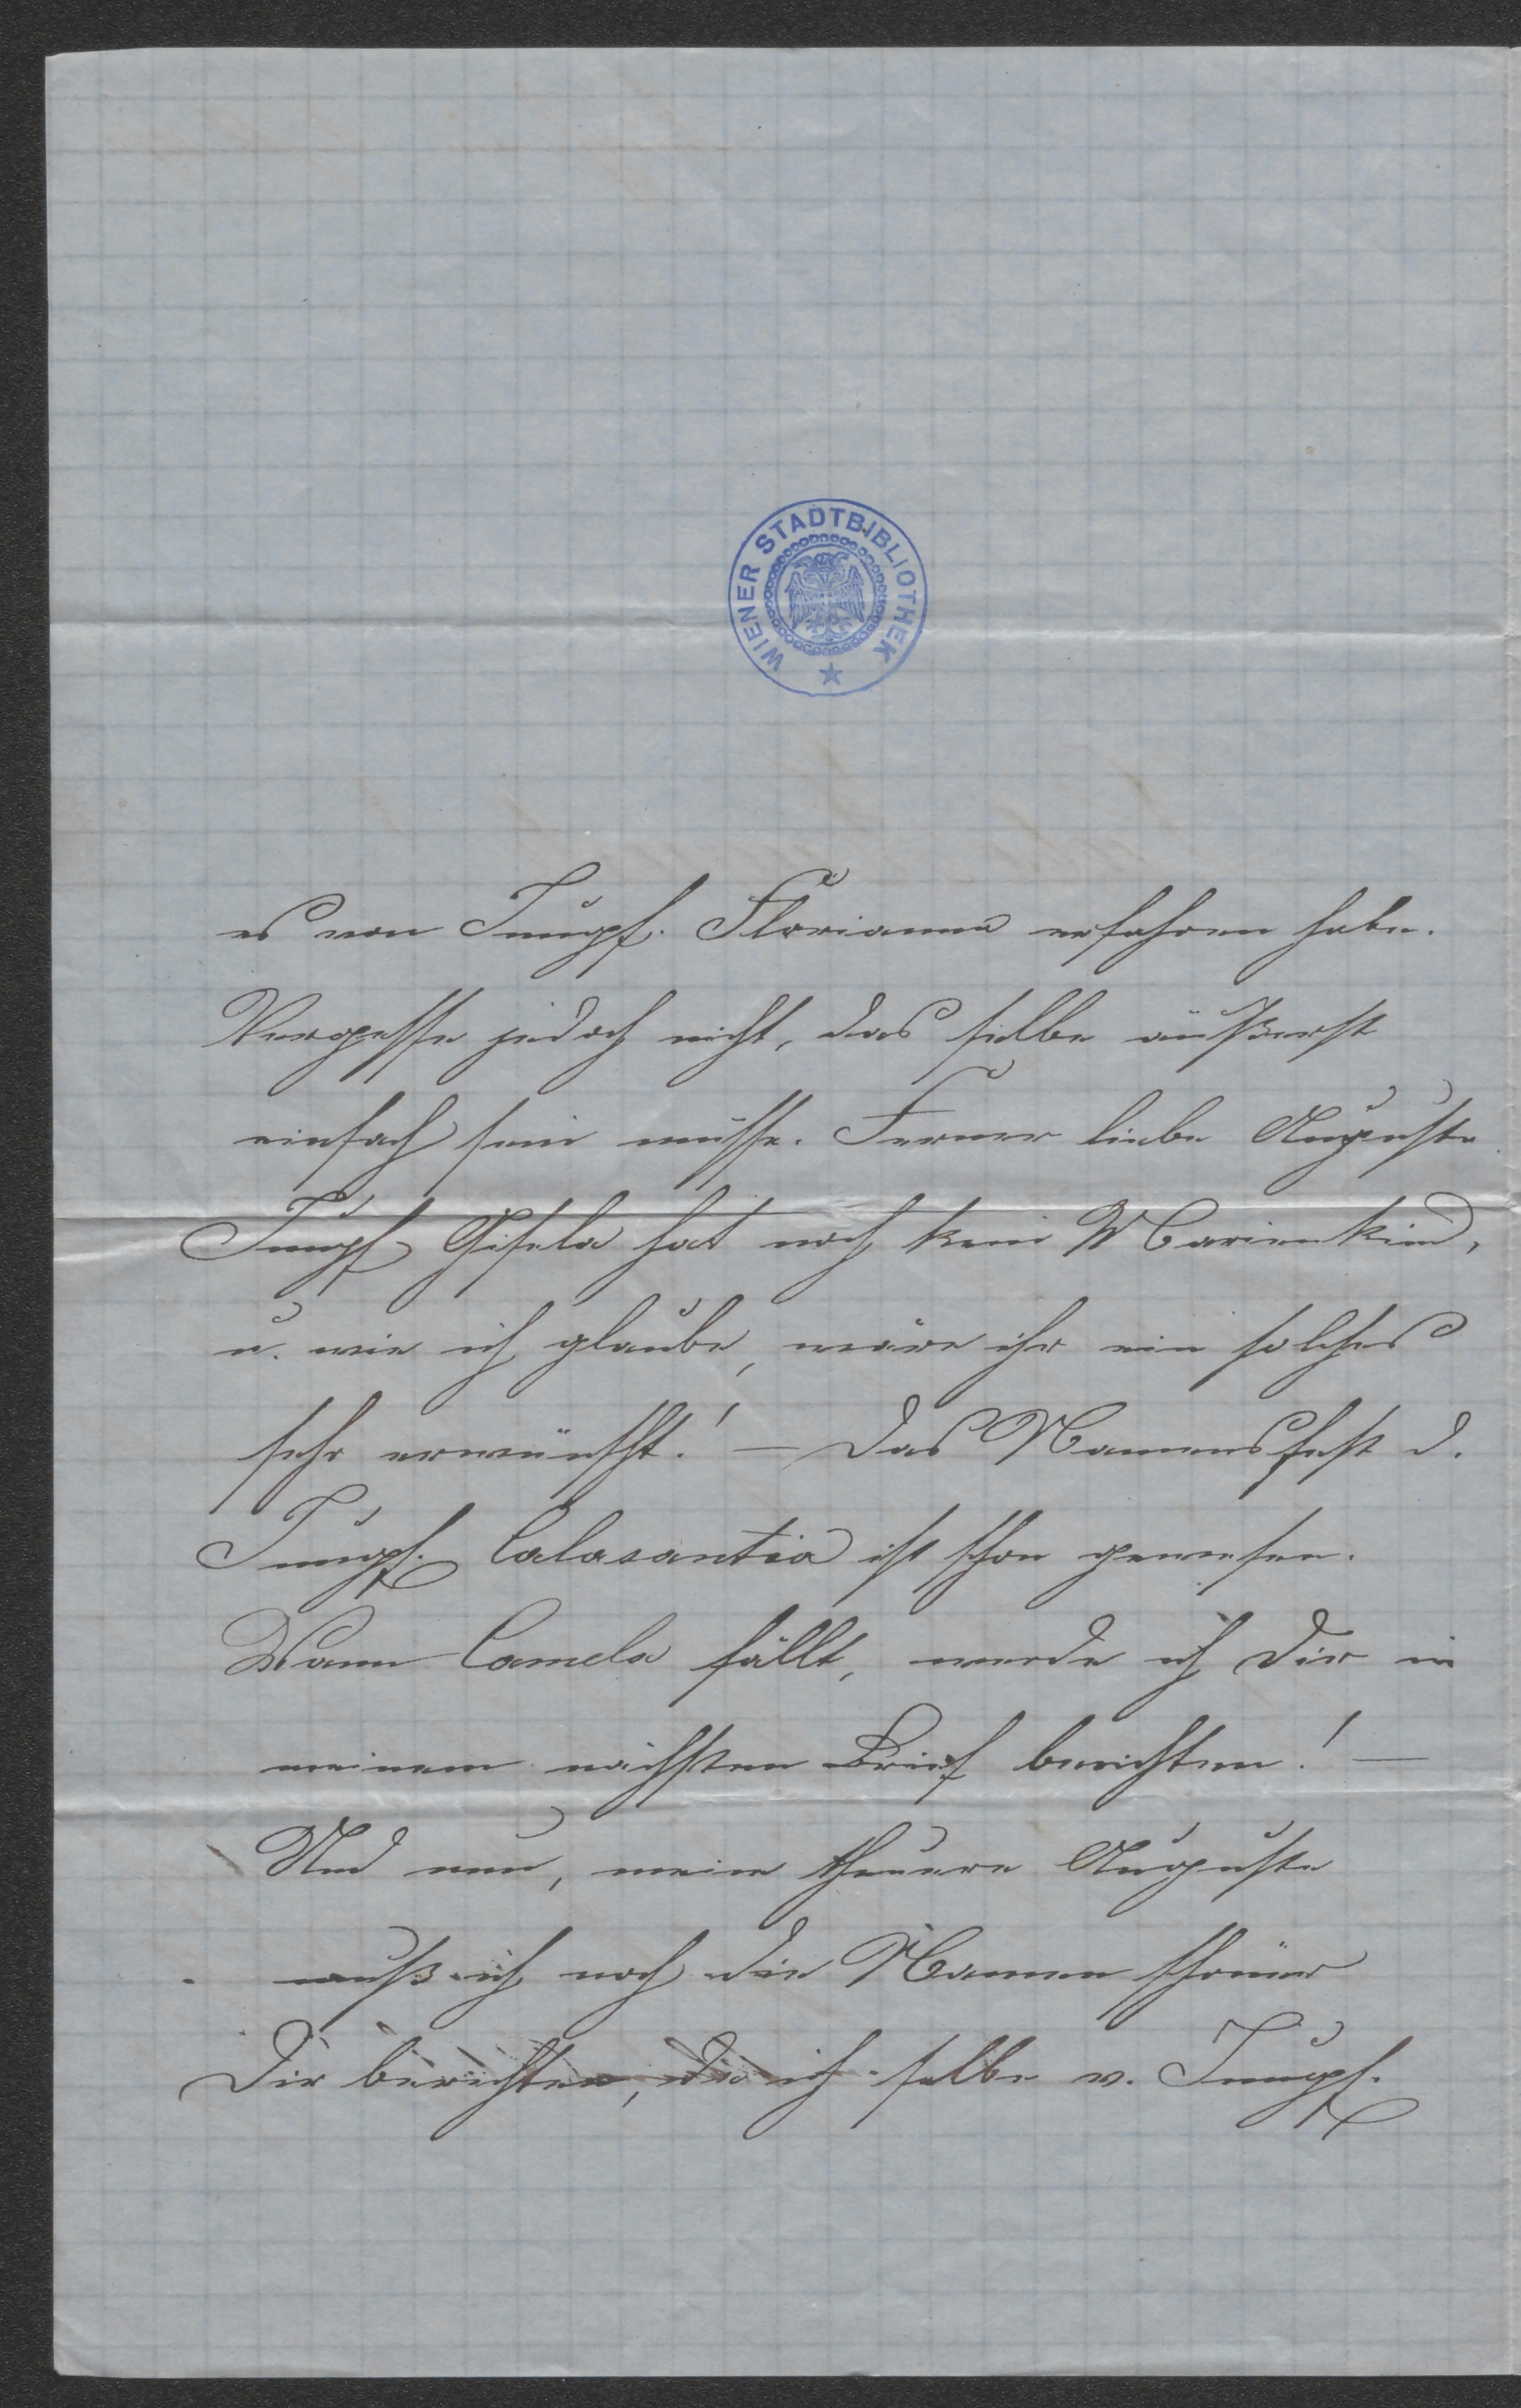 WIENER STADTBIBLIOTHEK
es von Jungf. Florianna erfahren habe.
Vergesse jedoch nicht, das selbe äußerst
einfach sein müsse. Ferner liebe Auguste
Jungf. Gisela hat noch kein Marienkind,
u. wie ich glaube, wäre ihr ein solches
sehr erwünscht! — Das Namensfest d.
Jungf. Calasantia ist schon gewesen.
Wann Camela fällt, werde ich Dir in
meinem nächsten Brief berichten! —
Und nun, meine theuere Auguste
muß ich noch die Namen
Dir berichten, die ich selbe v. Jungf.